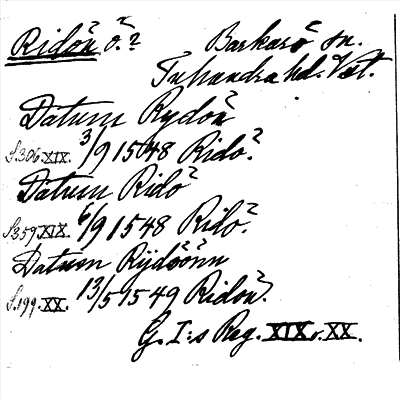 Ridön ö.?
Barkarö sn.
Tuhundra hd. Vst.
Datum Rydön
S.306.XIX. 3/9 1548 Ridö.
Datum Ridö
S.359.XIX. 6/9 1548 Ridö.
Datum Rijdöönn
S.199.XX. 13/5 1549 Ridön.
G. I:s Reg. XIX o. XX.